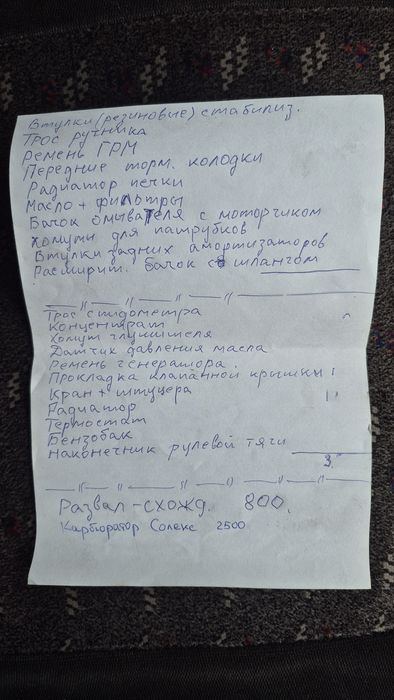 Втулки (резиновые) стабилиз.
Трос ручника
Ремень ГРМ
Передние торм. колодки
Радиатор печки
Масло + фильтры
Бачок омывателя с моторчиком
Хомуты для патрубков
Втулки задних амортизаторов
Расширит. бачок с шлангом
Трос спидометра
Концентрат
Хомут глушителя
Датчик давления масла
Ремень генератора.
Прокладка клапанной крышки
Кран + штуцера
Радиатор
Термостат
Бензобак
Наконечник рулевой тяги
3.
Развал-схожд. 800.
Карбюратор Солекс 2500